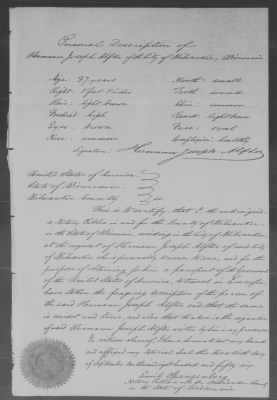 Personal Description of
Hermann Joseph Alfter of the City of Milwaukee, Wisconsin
Age: 37 years Mouth: small
Hight: 5 feet inches Teeth: sound
Hair: light brown Chin: common
Forehead: high Beard: light brown
Eyes: brown Face: oval
Nose: common Complexion: healthy
Signature: Hermann Joseph Alfter
United States of America
State of Wisconsin
Milwaukee County ss
This is to certify, that I, the undersigned,
a Notary Public in and for the County of Milwaukee,
in the State of Wisconsin, residing in the City of Milwaukee
at the request of Hermann Joseph Alfter of said City
of Milwaukee, who is personally known to me, and for the
purpose of obtaining for him a passport of the Government
of the United States of America, to travel in
have taken the foregoing description of the person of
the said Hermann Joseph Alfter and that the same
is correct and true, and also that above is the signature
of said Hermann Joseph Alfter written by him in my presence.
In witness whereof I have hereunto set my hand
and affixed my notarial seal this day of
September One thousand eight hundred and fifty six
Notary Public in & for Milwaukee County
in the State of Wisconsin